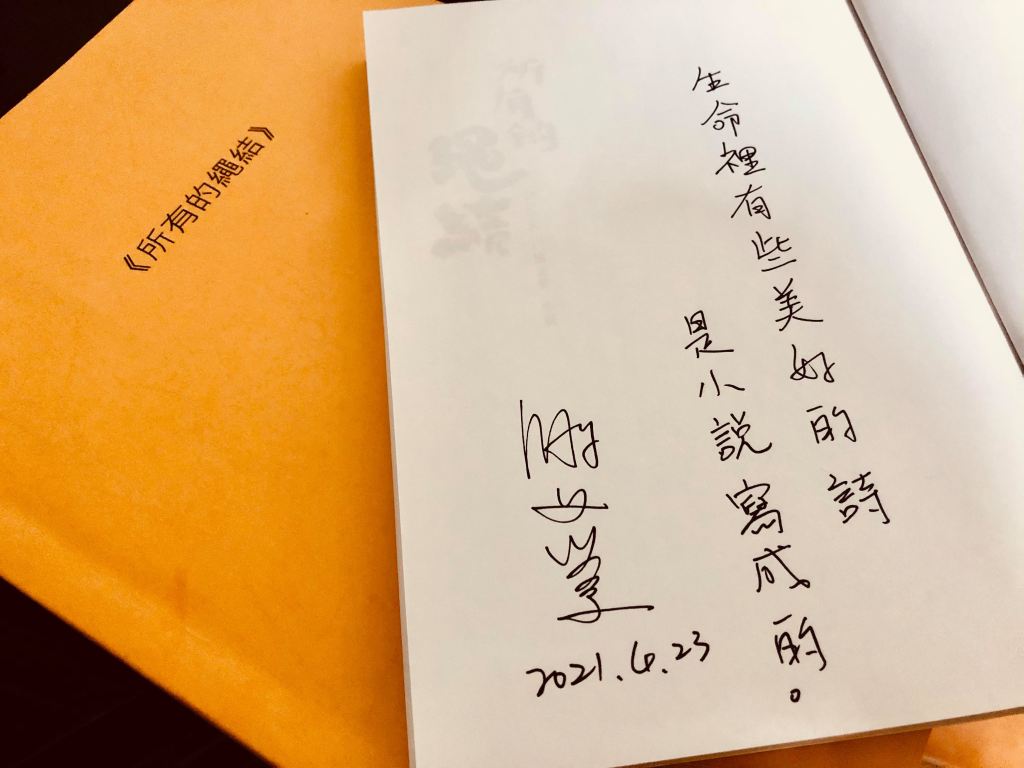 《所有的繩結》
生命裡有些美好的詩
是小說寫成的。
2021.4.23